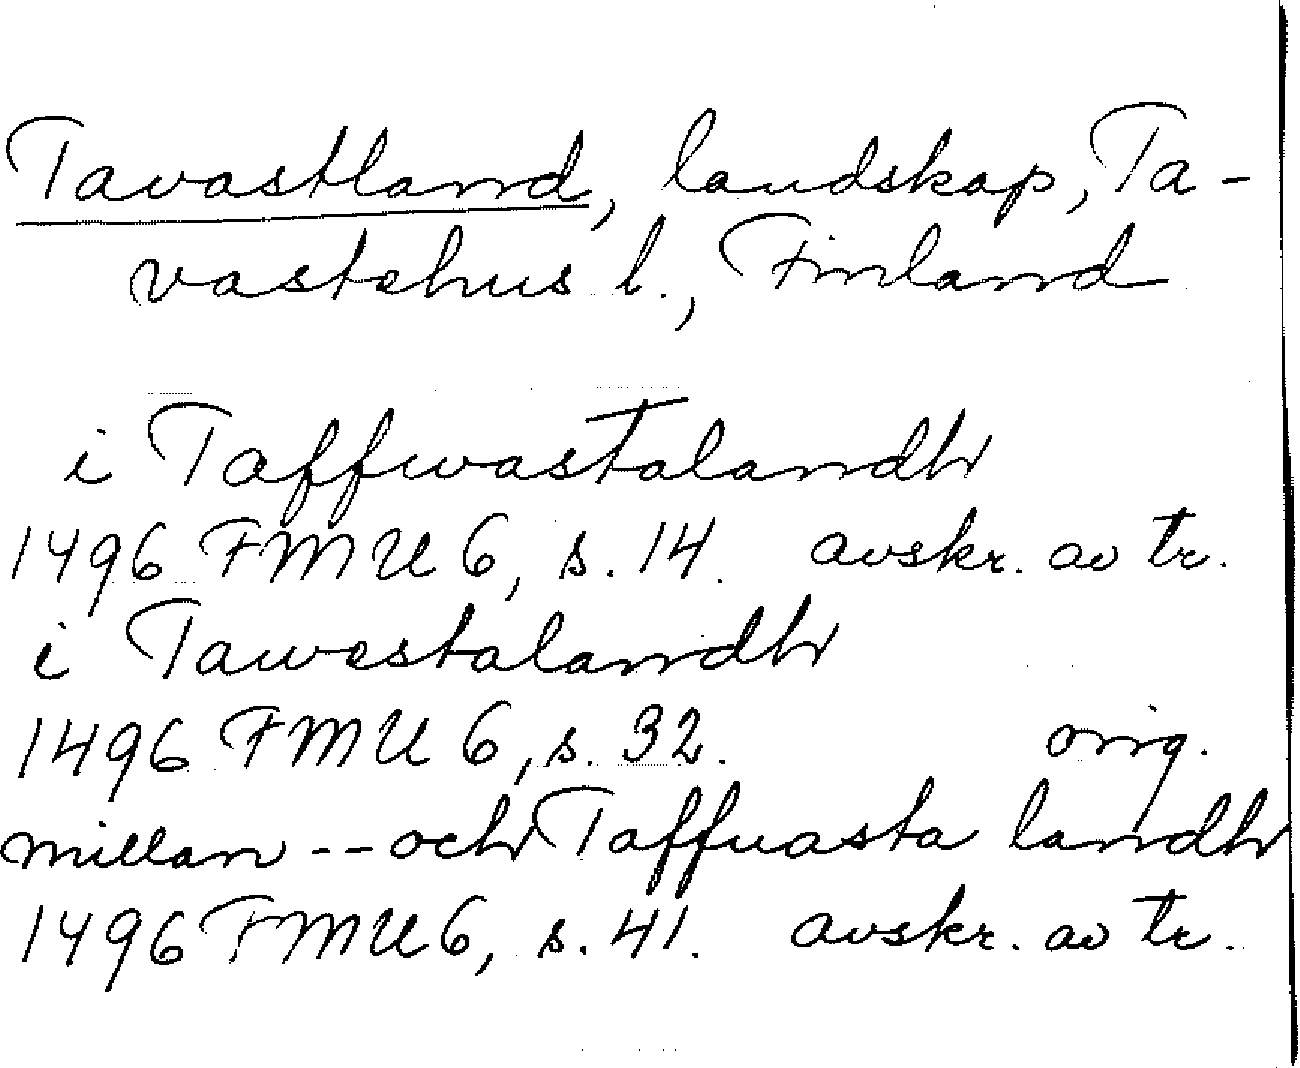 Tavastland, landskap, Ta-
vastehus l., Finland
i Taffwastalandh
1496 FMU 6, s. 14. avskr. av tr.
i Tawestalandh
1496 FMU 6, s. 32. orig.
millan -- och Taffuasta landh
1496 FMU 6, s. 41. avskr. av tr.